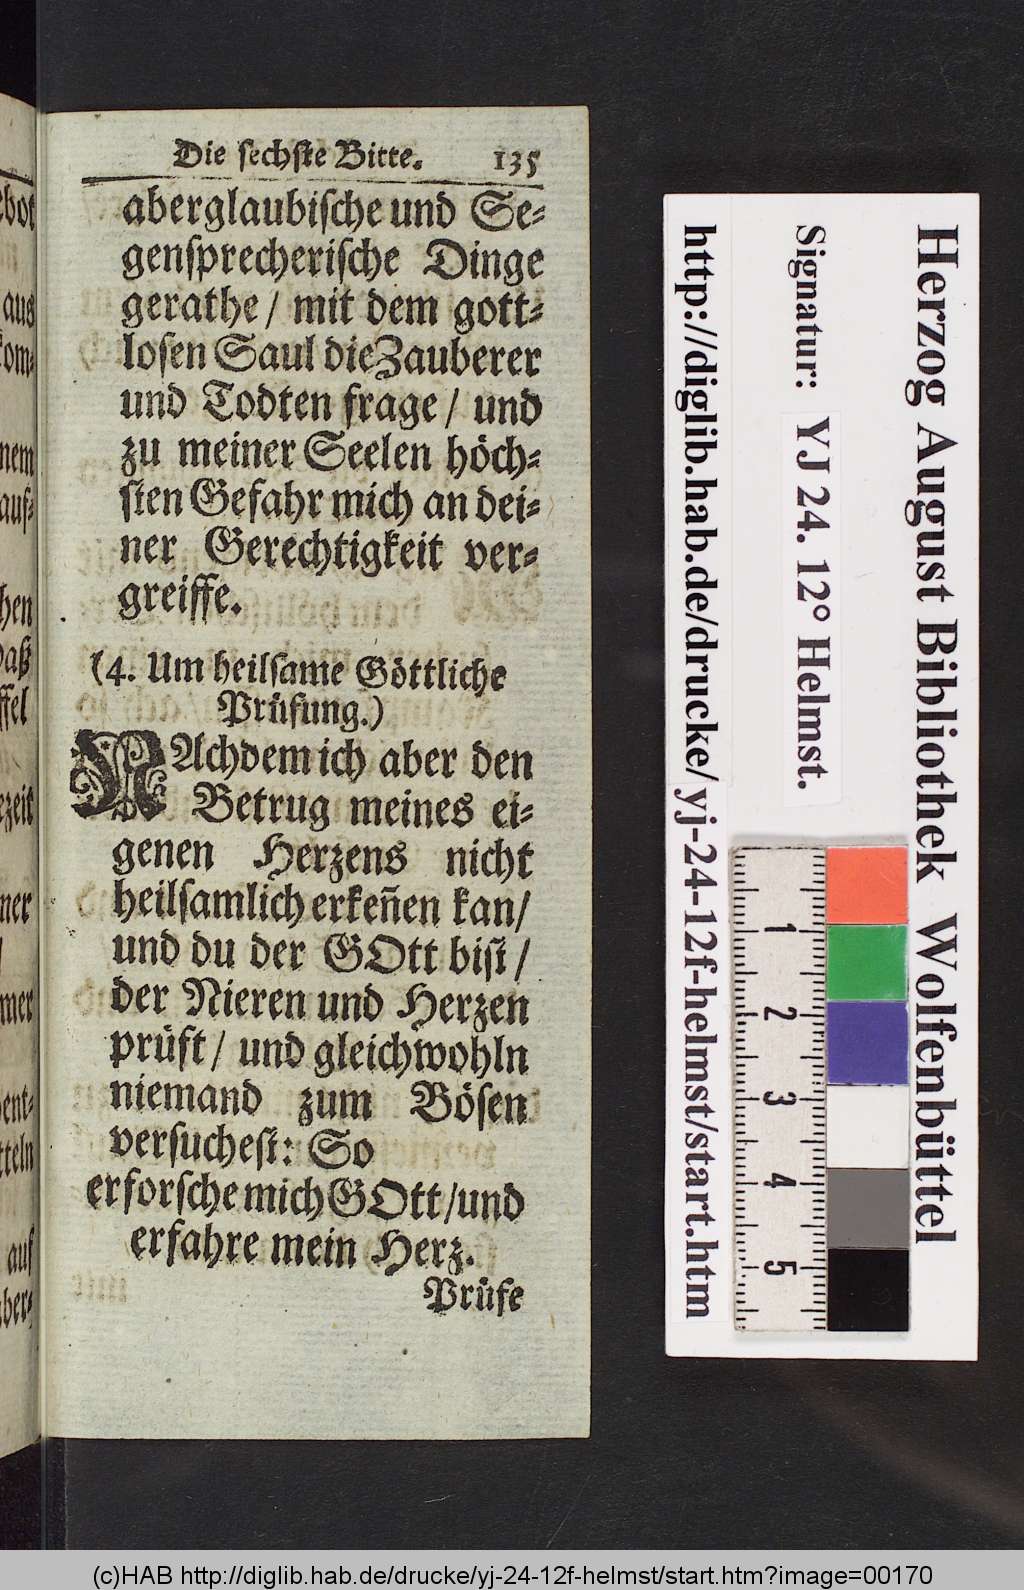 Die sechste Bitte. 135
aberglaubische und Se-
gensprecherische Dinge
gerathe / mit dem gott-
losen Saul die Zauberer
und Todten frage / und
zu meiner Seelen höch-
sten Gefahr mich an dei-
ner Gerechtigkeit ver-
greiffe.
(4. Um heilsame Göttliche
Prüfung.)
NAchdem ich aber den
Betrug meines ei-
genen Herzens nicht
heilsamlich erkeñen kan/
und du der GOtt bist /
der Nieren und Herzen
prüft / und gleichwohln
niemand zum Bösen
versuchest: So
erforsche mich GOtt/und
erfahre mein Herz.
Prüfe
ebot
aus
kom-
nem
auf-
hen
daß
ffel
ezeit
ner
/
mer
ent-
tteln
auf
ber-
Herzog August Bibliothek Wolfenbüttel
Signatur: YJ 24. 12° Helmst.
http://diglib.hab.de/drucke/yj-24-12f-helmst/start.htm
1
2
3
4
5
(c)HAB http://diglib.hab.de/drucke/yj-24-12f-helmst/start.htm?image=00170